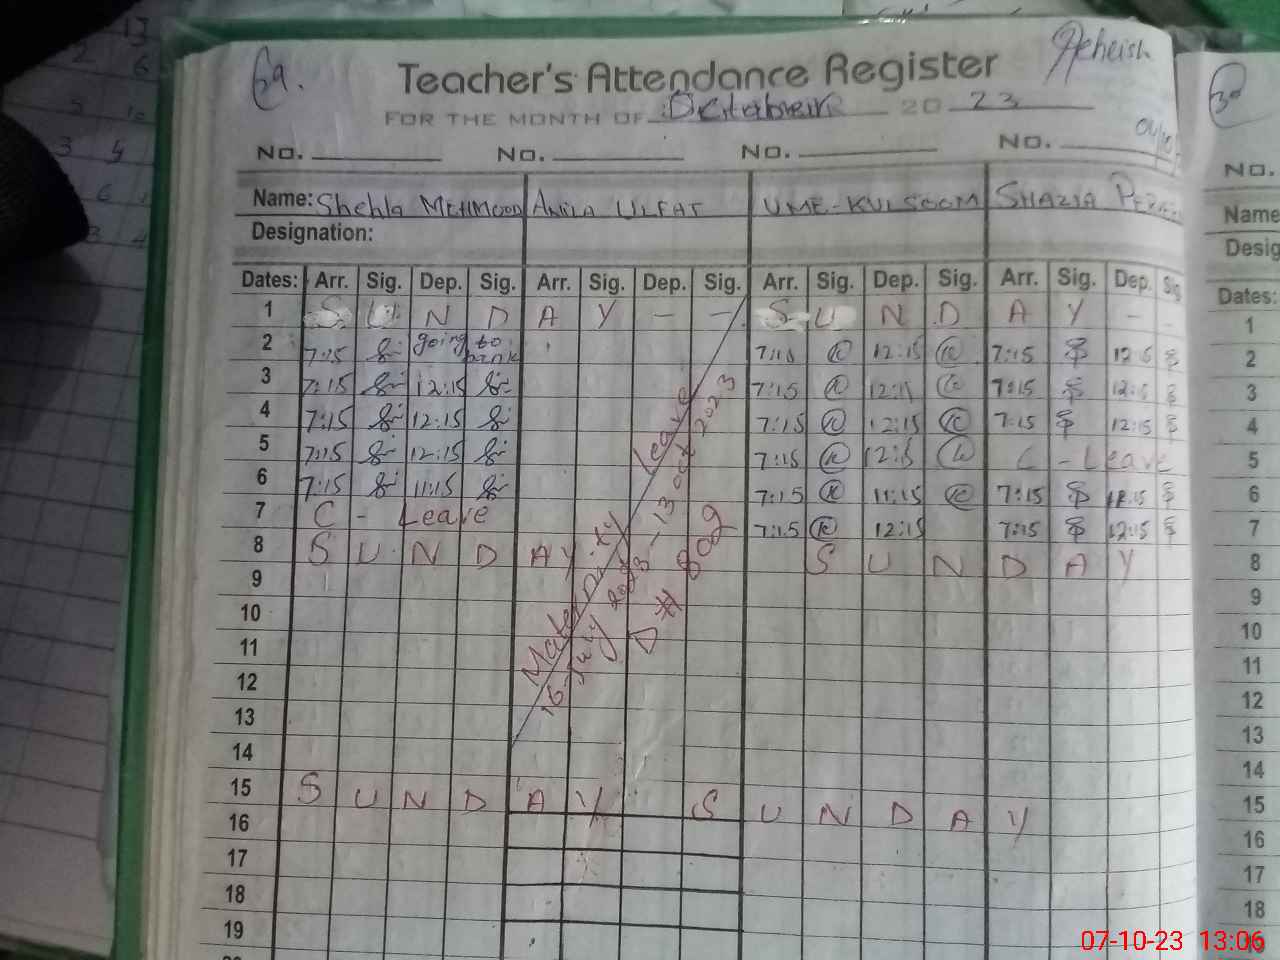 6a.
Teacher's Attendance Register
FOR THE MONTH OF October 20 23
No. No. No. No.
Name: Shehla MEHMOOD ANILA ULFAT UME-KULSOOM SHAZIA
Designation:
Dates: Arr. Sig. Dep. Sig. Arr. Sig. Dep. Sig. Arr. Sig. Dep. Sig. Arr. Sig. Dep. Sig
1 S U N D A Y - - S U N D A Y - -
2 7:15 going to bank 7:15 12:15 7:15 12:15
3 7:15 12:15 7:15 12:15 7:15 12:15
4 7:15 12:15 7:15 12:15 7:15 12:15
5 7:15 12:15 7:15 12:15 C - Leave
6 7:15 11:15 7:15 11:15 7:15 11:15
7 C - Leave 7:15 12:15 7:15 12:15
8 S U N D A Y S U N D A Y
Maternity Leave
16-July 2023 - 13 oct 2023
D # 809
9
10
11
12
13
14
15 S U N D A Y S U N D A Y
16
17
18
19
No.
Name
Desig
Dates:
1
2
3
4
5
6
7
8
9
10
11
12
13
14
15
16
17
18
07-10-23 13:06